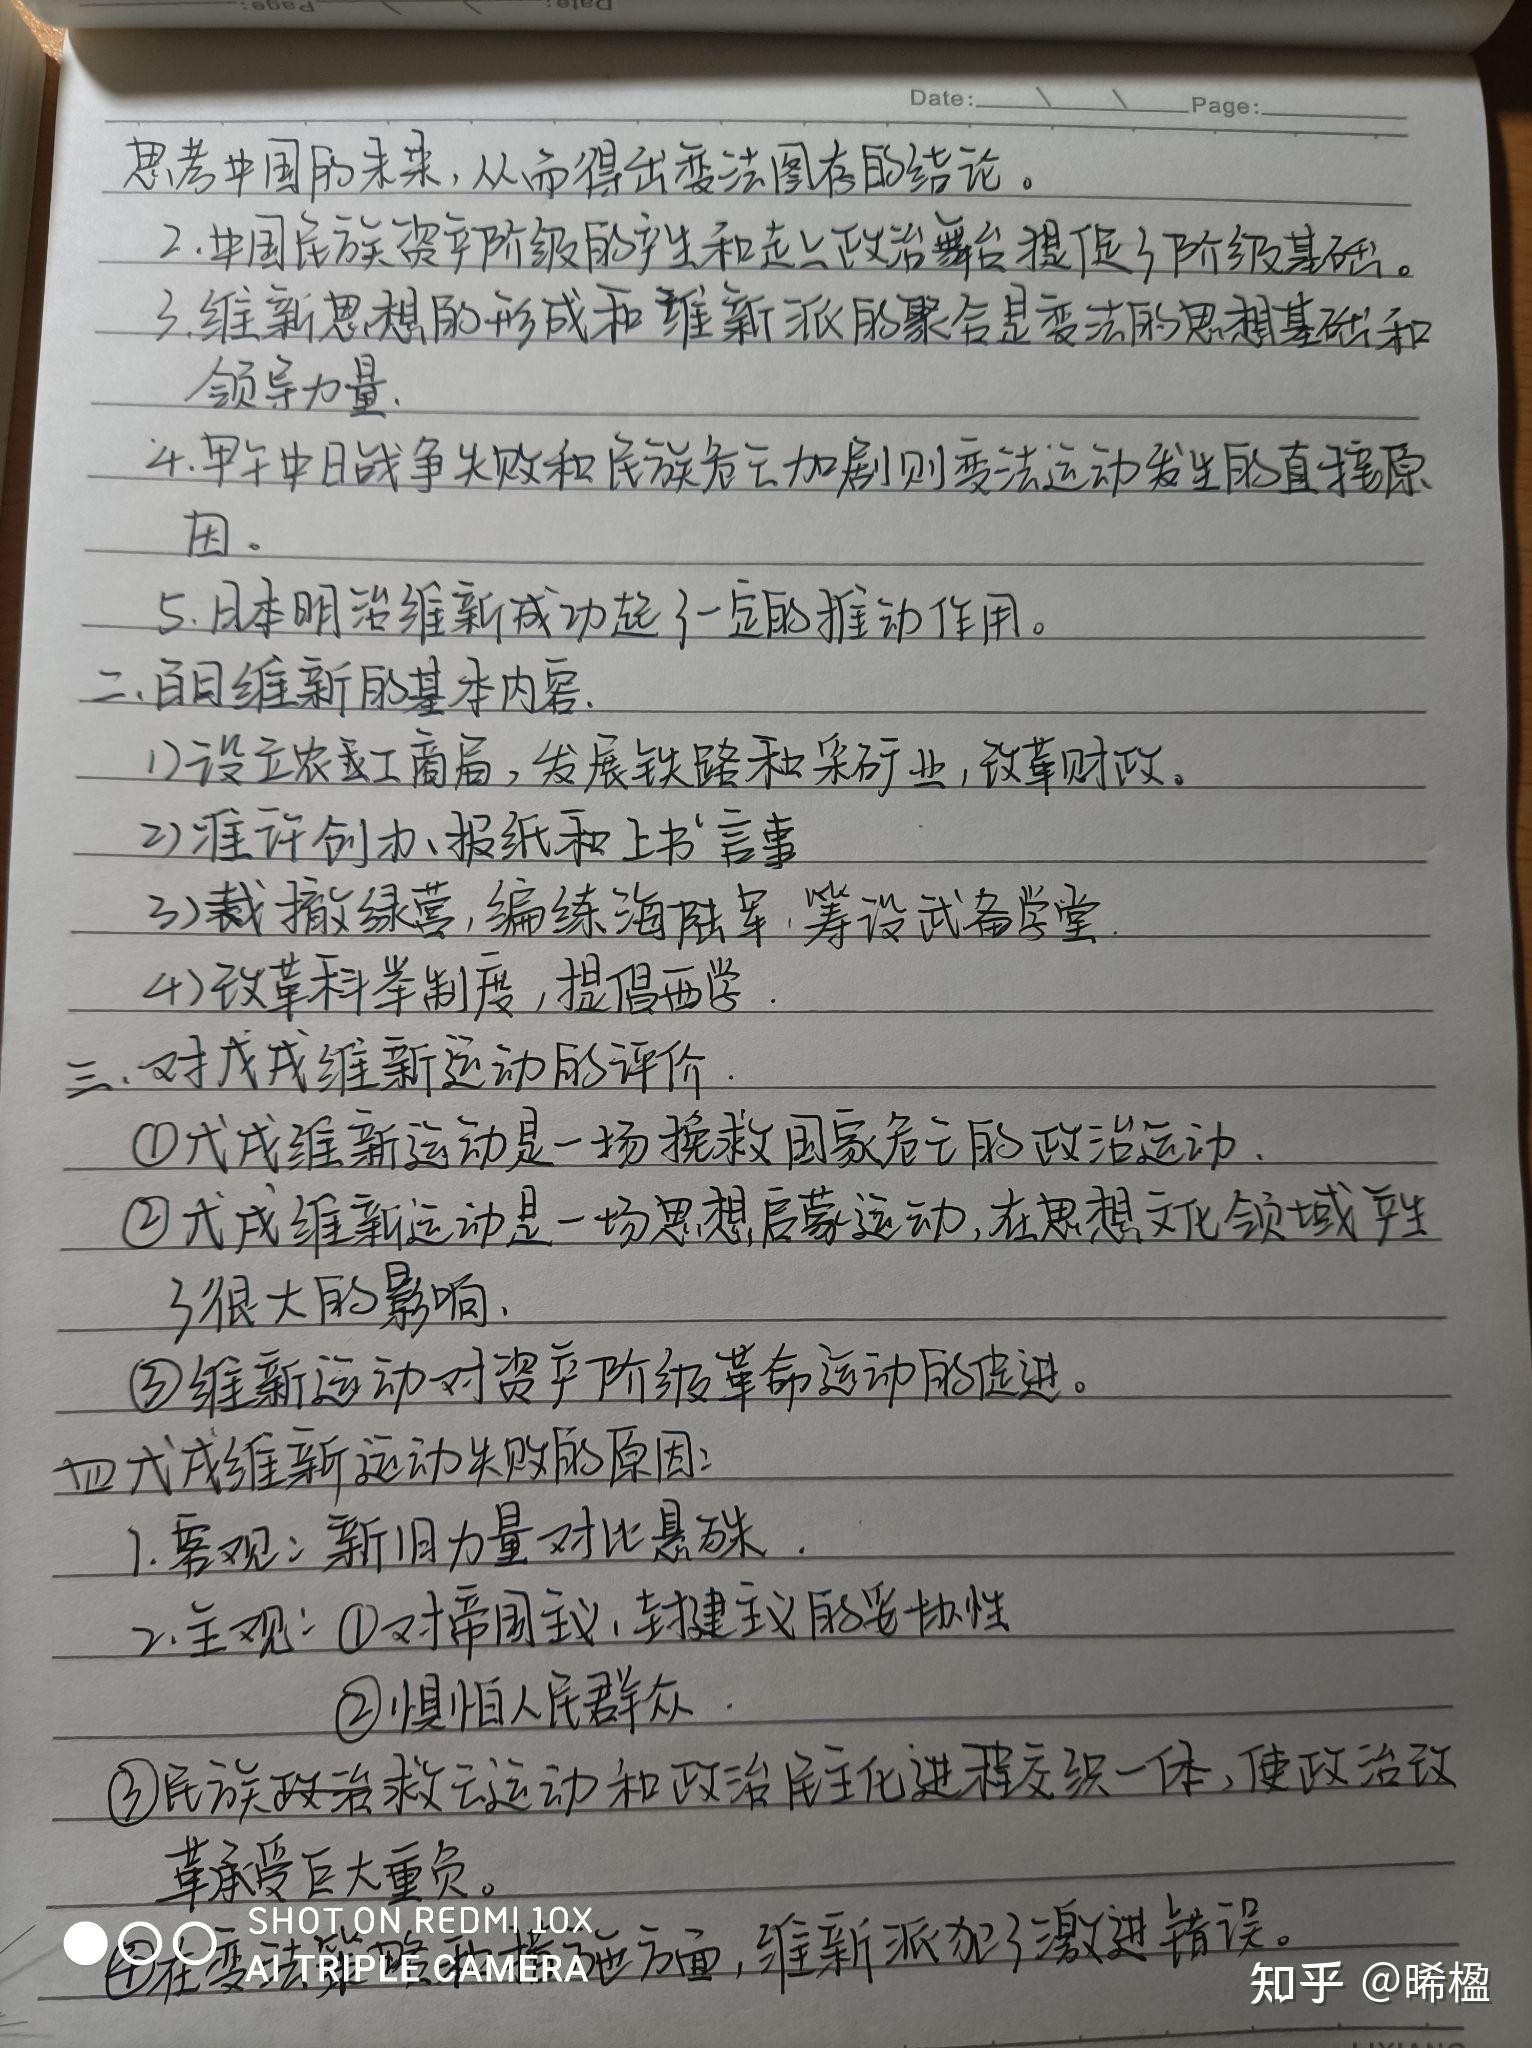 Date: Page:
思考中国的未来，从而得出变法图存的结论。
2.中国民族资产阶级的产生和走上政治舞台提促了阶级基础。
3.维新思想的形成和维新派的聚合是变法的思想基础和
领导力量.
4.甲午中日战争失败和民族危亡加剧则变法运动发生的直接原
因。
5.日本明治维新成功起了一定的推动作用。
二.百日维新的基本内容.
1)设立农工商局，发展铁路和采矿业，改革财政。
2)准许创办、报纸和上书言事
3)裁撤绿营，编练海陆军.筹设武备学堂.
4)改革科举制度，提倡西学.
三.对戊戌维新运动的评价.
①戊戌维新运动是一场挽救国家危亡的政治运动.
②戊戌维新运动是一场思想启蒙运动，在思想文化领域产生
了很大的影响.
③维新运动对资产阶级革命运动的促进。
四戊戌维新运动失败的原因：
1.客观：新旧力量对比悬殊.
2.主观：①对帝国主义，封建主义的妥协性
②惧怕人民群众.
③民族政治救亡运动和政治民主化进程交织一体，使政治改
革承受巨大重负。
④在变法策略和措施方面，维新派犯了激进错误。
SHOT ON REDMI 10X
AI TRIPLE CAMERA
知乎 @晞楹